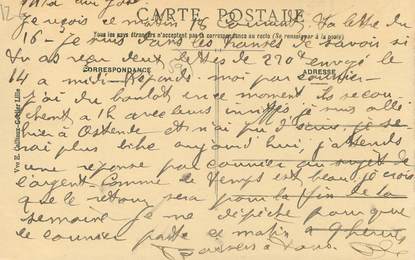 CARTE POSTALE
Tous les pays étrangers n'acceptent pas la correspondance au recto (Se renseigner à la poste)
je reçois ce matin 18 ta lettre du
16 - je suis dans les transes de savoir si
tu as reçu deux lettres de 270 envoyé le
CORRESPONDANCE
ADRESSE
14 a midi - Réponds moi par courrier
j'ai du boulot en ce moment ils
a 12 avec leurs invités je suis allé
hier à Ostende et n'ai pu je se
rai plus libre aujourd'hui, j'attends
une réponse par courrier au sujet de
l'argent. Comme le temps est beau je crois
que le retour sera pour la fin de la
semaine je me dépêche pour que
le courrier parte ce matin a 9 heures
Baisers a tous
Vve E. Cailteux-Cortier Lille
12